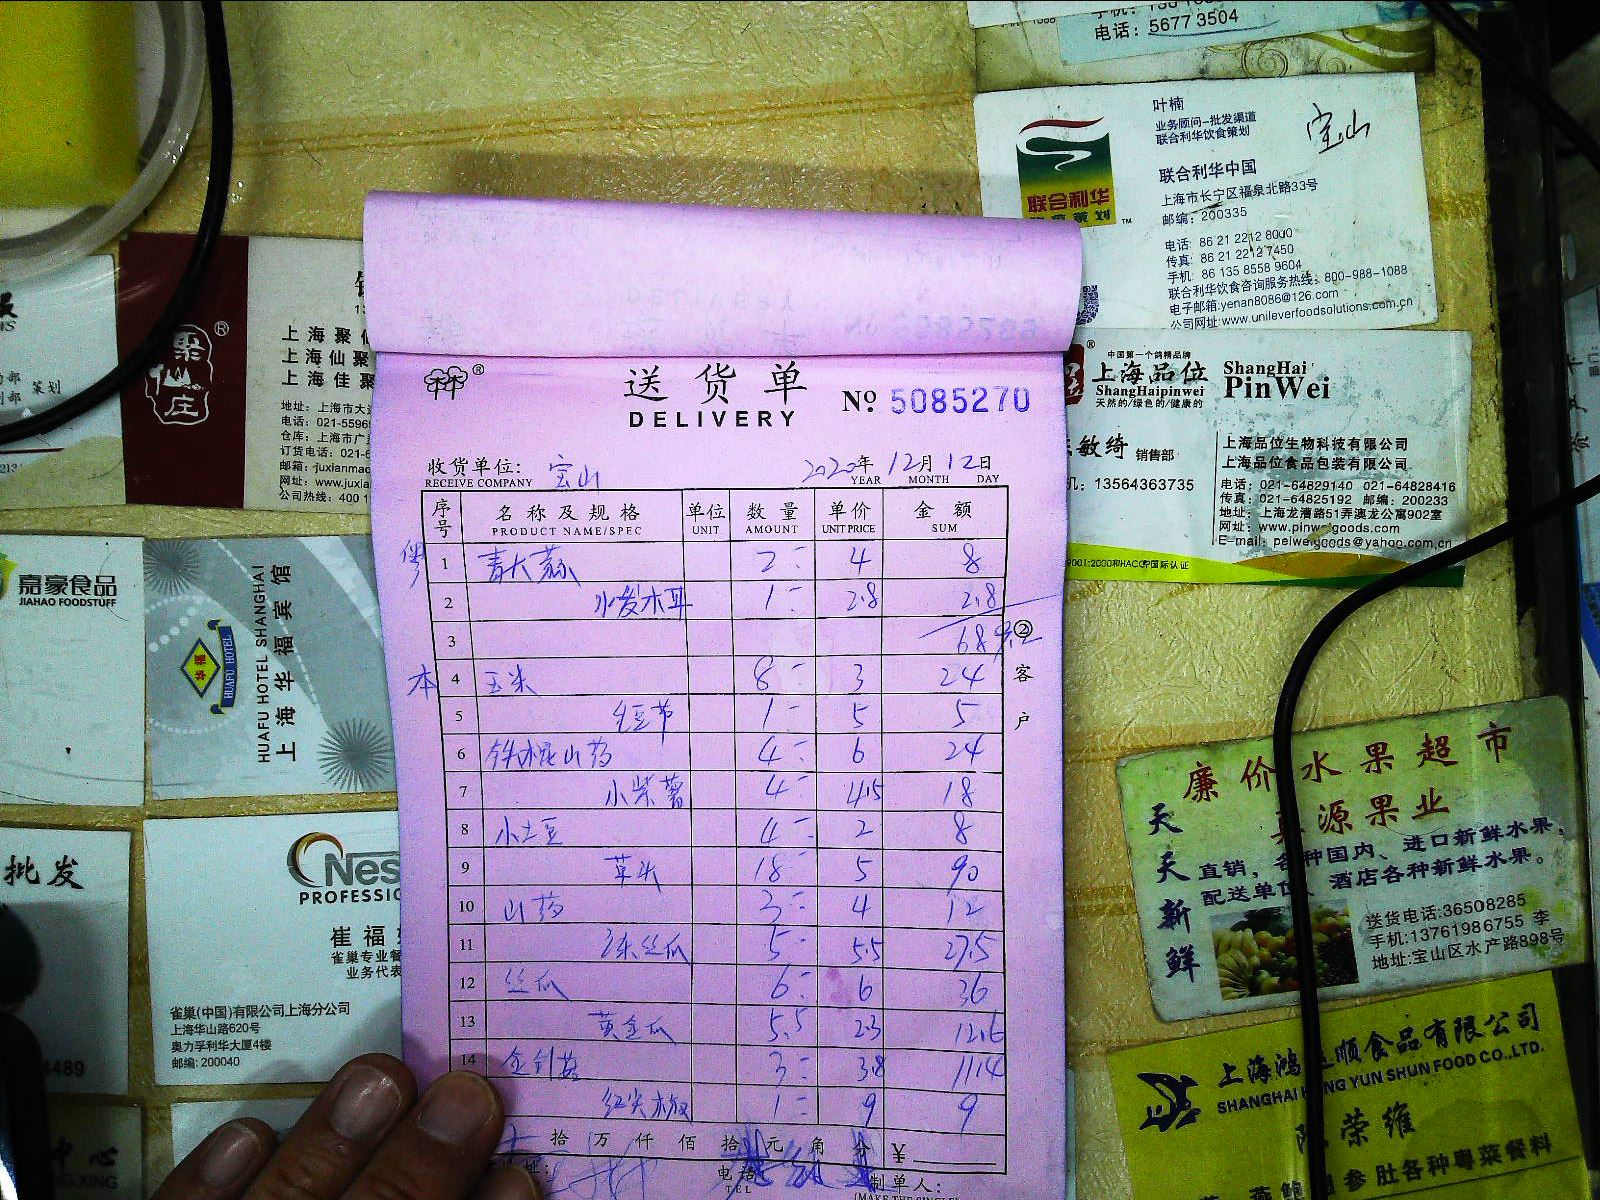 电话：5677 3504
叶楠
业务顾问-批发渠道
联合利华饮食策划
宝山
联合利华
™
联合利华中国
上海市长宁区福泉北路33号
邮编：200335
电话: 86 21 2212 8000
传真: 86 21 2212 7450
手机: 86 135 8558 9604
联合利华饮食咨询服务热线: 800-988-1088
电子邮箱:yenan8086@126.com
公司网址:www.unileverfoodsolutions.com.cn
聚仙庄
®
上海聚
上海仙聚
上海佳聚
策划
中国第一个鸽精品牌
上海品位
ShangHaipinwei
天然的/绿色的/健康的
ShangHai
PinWei
敏绮 销售部
13564363735
上海品位生物科技有限公司
上海品位食品包装有限公司
电话: 021-64829140 021-64828416
传真: 021-64825192 邮编: 200233
地址: 上海龙漕路51弄澳龙公寓902室
网址: www.pinweigoods.com
E-mail: peiweigoods@yahoo.com.cn
9001:2000和HACCP国际认证
®
送货单
DELIVERY
No 5085270
收货单位: 宝山
RECEIVE COMPANY
2020年 12月 12日
YEAR MONTH DAY
序号 名称及规格 单位 数量 单价 金额
PRODUCT NAME/SPEC UNIT AMOUNT UNIT PRICE SUM
1 青大蒜 2 4 8
2 水发木耳 1 2.8 2.8
3
本 4 玉米 8 3 24
5 1 5 5
6 铁棍山药 4 6 24
7 小紫薯 4 4.5 18
8 小土豆 4 2 8
9 草头 18 5 90
10 山药 3 4 12
11 丝瓜 5 5.5 27.5
12 丝瓜 6 6 36
13 黄金瓜 5.5 2.3 12.6
14 金针菇 3 3.8 11.4
红尖椒 1 9 9
拾万仟佰拾元角分 ¥
电话:
TEL
制单人:
②客户
嘉豪食品
JIAHAO FOODSTUFF
华福
HUAFU HOTEL
HUAFU HOTEL SHANGHAI
上海华福宾馆
批发
Nes
PROFESSIO
崔福
雀巢专业餐
业务代表
雀巢(中国)有限公司上海分公司
上海华山路620号
奥力孚利华大厦4楼
邮编: 200040
4489
中心
廉价水果超市
源果业
天天新鲜
直销，各种国内、进口新鲜水果，
配送单位、酒店各种新鲜水果。
送货电话:36508285
手机:13761986755 李
地址:宝山区水产路898号
上海鸿运顺食品有限公司
SHANGHAI HONG YUN SHUN FOOD CO.,LTD.
荣维
参肚各种粤菜餐料